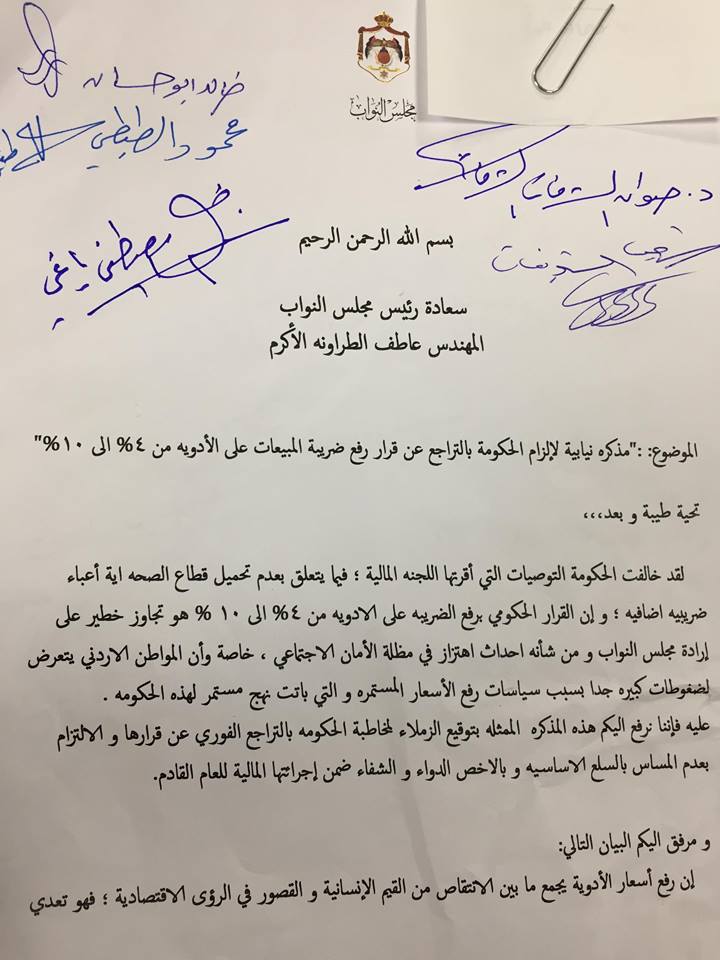 مجلس النواب
خالد ابو حسان
محمود الطيطي
د. صوان الشرفات
مصطفى ياغي
بسم الله الرحمن الرحيم
سعادة رئيس مجلس النواب
المهندس عاطف الطراونه الأكرم
الموضوع: :"مذكره نيابية لإلزام الحكومة بالتراجع عن قرار رفع ضريبة المبيعات على الأدويه من ٤% الى ١٠%"
تحية طيبة و بعد،،،
لقد خالفت الحكومة التوصيات التي أقرتها اللجنه المالية ؛ فيما يتعلق بعدم تحميل قطاع الصحه اية أعباء
ضريبيه اضافيه ؛ و إن القرار الحكومي برفع الضريبه على الادويه من ٤% الى ١٠ % هو تجاوز خطير على
إرادة مجلس النواب و من شأنه احداث اهتزاز في مظلة الأمان الاجتماعي ، خاصة وأن المواطن الاردني يتعرض
لضغوطات كبيره جدا بسبب سياسات رفع الأسعار المستمره و التي باتت نهج مستمر لهذه الحكومه .
عليه فإننا نرفع اليكم هذه المذكره الممثله بتوقيع الزملاء لمخاطبة الحكومه بالتراجع الفوري عن قرارها و الالتزام
بعدم المساس بالسلع الاساسيه و بالاخص الدواء و الشفاء ضمن إجرائتها المالية للعام القادم.
و مرفق اليكم البيان التالي:
إن رفع أسعار الأدوية يجمع ما بين الانتقاص من القيم الإنسانية و القصور في الرؤى الاقتصادية ؛ فهو تعدي